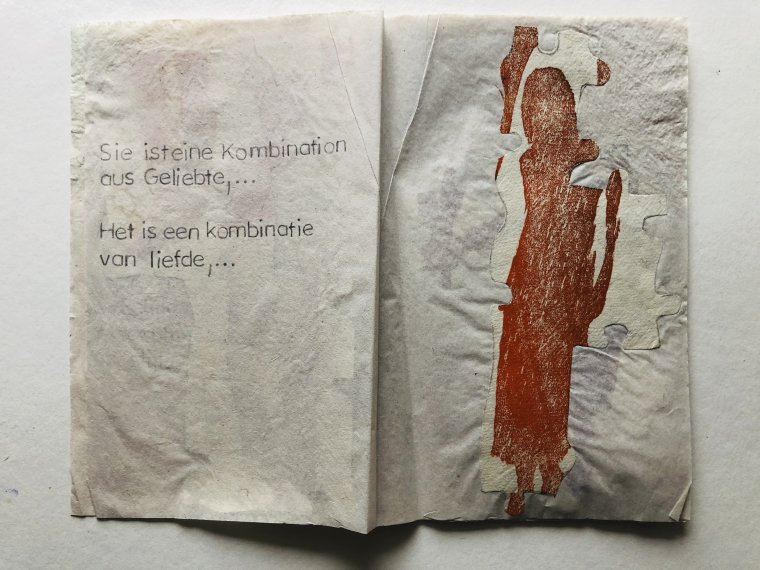 Sie isteine Kombination
aus Geliebte,...
Het is een kombinatie
van liefde,...